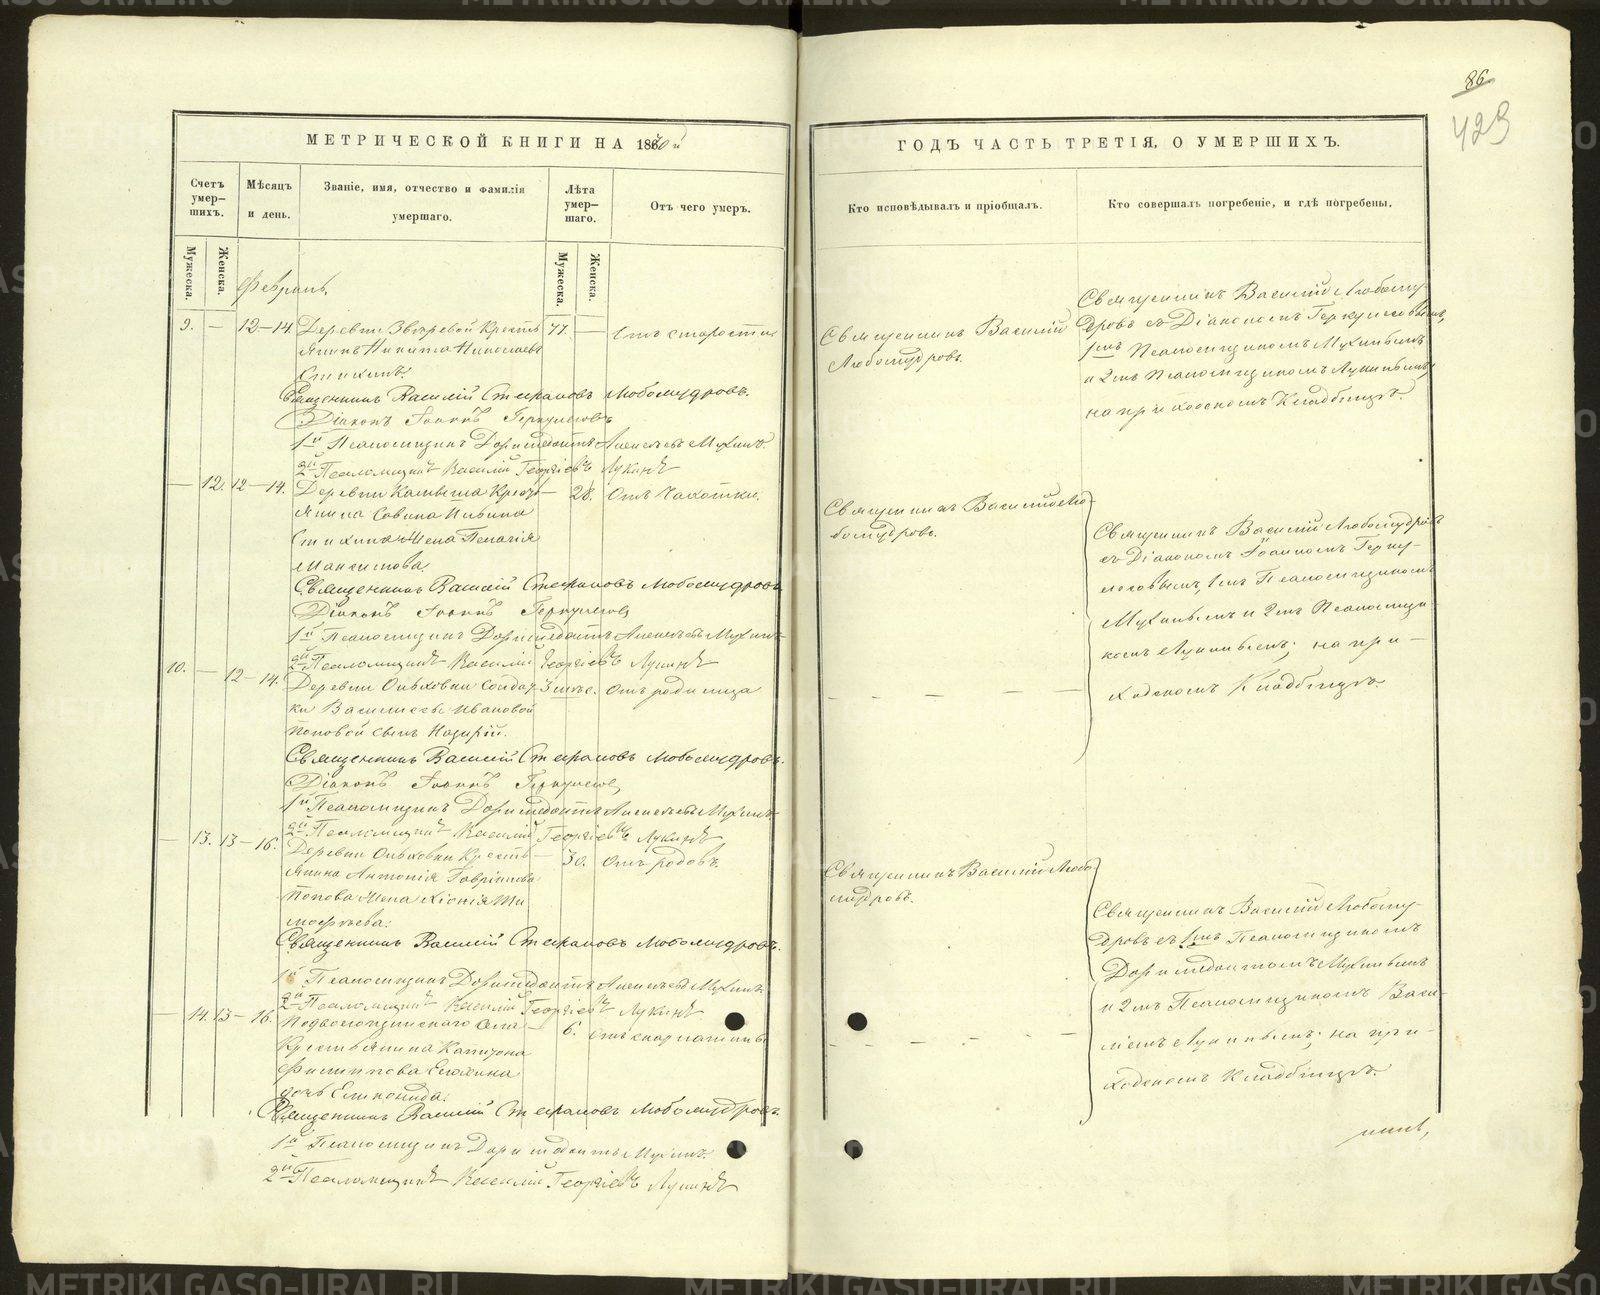 86
423
МЕТРИЧЕСКОЙ КНИГИ НА 1880й
ГОДЪ ЧАСТЬ ТРЕТІЯ, О УМЕРШИХЪ.
Счетъ умер-шихъ.
Мѣсяцъ и день.
Званіе, имя, отчество и фамилія умершаго.
Лѣта умер-шаго.
Отъ чего умеръ.
Кто исповѣдывалъ и пріобщалъ.
Кто совершалъ погребеніе, и гдѣ погребены.
Мужеска.
Женска.
Мужеска.
Женска.
Февраль.
9. — 12–14. Деревни Звѣревой Кресть 77. — Отъ старости
янинъ Никита Николаевъ
Священникъ Василій Стефановъ Любомудровъ.
Діаконъ Іоаннъ Геркулесовъ
1й Псаломщикъ Доримедонтъ Алексѣевъ Мухинъ.
2й Псаломщикъ Василій Георгіевъ Лукинъ
Священникъ Василій
Любомудровъ.
Священникъ Василій Любому-
дровъ съ Діакономъ Геркулесовымъ,
1мъ Псаломщикомъ Мухинымъ
и 2мъ Псаломщикомъ Лукинымъ,
на приходскомъ Кладбищѣ.
— 12. 12–14. Деревни Кресть — 28. Отъ Чахотки.
янина Савина
жена Пелагія
Максимова.
Священникъ Василій Стефановъ Любомудровъ
Діаконъ Іоаннъ Геркулесовъ
1й Псаломщикъ Доримедонтъ Алексѣевъ Мухинъ
2й Псаломщикъ Василій Георгіевъ Лукинъ
Священникъ Василій Лю-
бомудровъ.
Священникъ Василій Любомудровъ
съ Діакономъ Іоанномъ Герку-
лесовымъ, 1мъ Псаломщикомъ
Мухинымъ и 2мъ Псаломщи-
комъ Лукинымъ; на при-
ходскомъ Кладбищѣ.
10. — 12–14. Деревни Ольховки Солдат- 3 мѣс. Отъ родимца
ки Василисы Ивановой
Поповой сынъ Назарій.
Священникъ Василій Стефановъ Любомудровъ.
Діаконъ Іоаннъ Геркулесовъ
1й Псаломщикъ Доримедонтъ Алексѣевъ Мухинъ
2й Псаломщикъ Василій Георгіевъ Лукинъ
— 13. 13–16. Деревни Ольховки Кресть — 30. Отъ родовъ.
янина Антонія Гаврілова
Попова жена Хіонія Ти
моѳѣева.
Священникъ Василій Стефановъ Любомудровъ.
1й Псаломщикъ Доримедонтъ Алексѣевъ Мухинъ
2й Псаломщикъ Василій Георгіевъ Лукинъ
Священникъ Василій Любо
мудровъ.
Священникъ Василій Любому-
дровъ съ 1мъ Псаломщикомъ
Доримедонтомъ Мухинымъ
и 2мъ Псаломщикомъ Васи-
ліемъ Лукинымъ; на при-
ходскомъ Кладбищѣ.
— 14. 13–16. Села — 6. Отъ скарлатины
Крестьянина Капитона
Филипова
дочь
Священникъ Василій Стефановъ Любомудровъ.
1й Псаломщикъ Доримедонтъ Мухинъ.
2й Псаломщикъ Василій Георгіевъ Лукинъ
METRIKI.GASO-URAL.RU